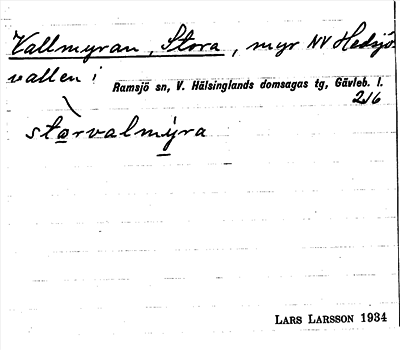 Vallmyran, Stora, myr NV Hedsjö-
vallen i
Ramsjö sn, V. Hälsinglands domsagas tg, Gävleb. l.
216
starvalmyra
LARS LARSSON 1934